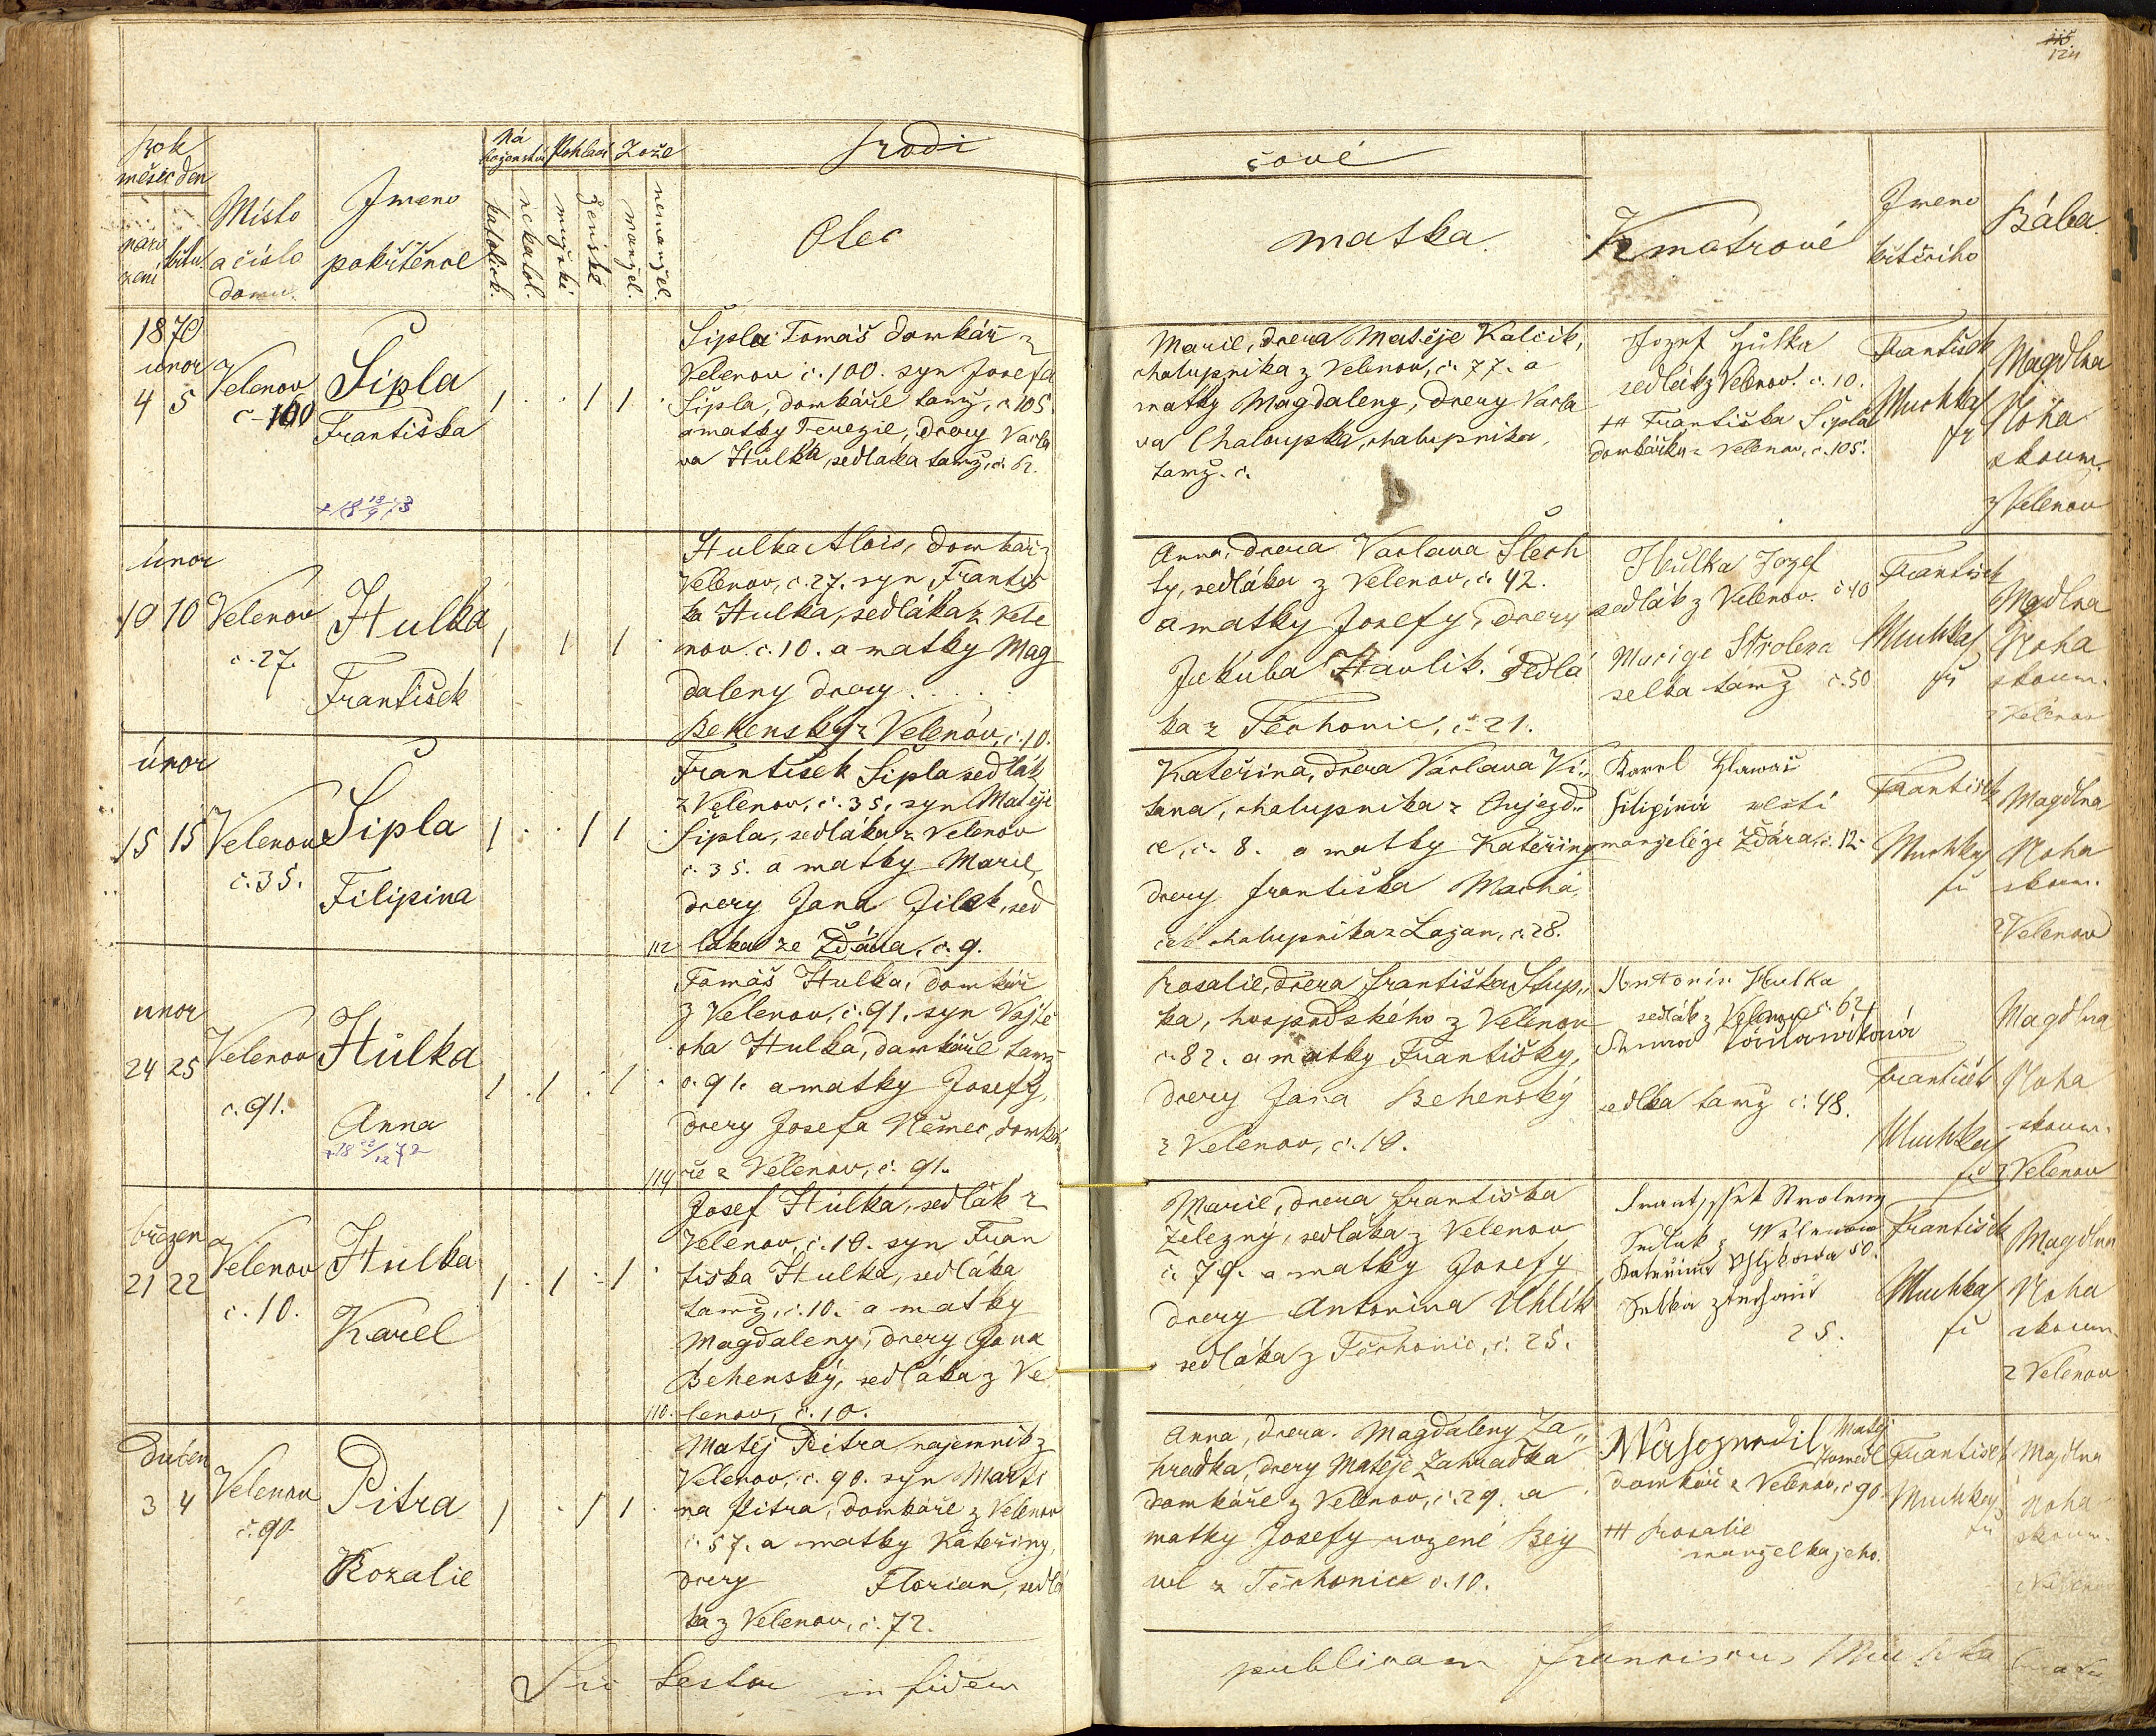 124
Rok
měsíc den
naro
zení
křtu.
Místo
a číslo
domu.
Jmeno
pokřtěnce
Ná
boženství
Pohlaví
Lože
katolick.
nekatol.
mužské
ženské
manžel.
nemanžel.
Rodi
čové
Otec
matka.
Kmotrové
Jmeno
křtícího
Bába
1870
unor
4 5
Velenov
č. 100
Šipla
Františka
1 . . 1 1 .
Šipla Tomáš domkář z
Velenov č. 100. syn Josefa
Šipla, domkáře tamž, č. 105.
a matky Terezie, dcery Václa
va Hulka, sedlaka tamž, č. 62.
Marie, dcera Matěje Kalcik,
chalupnika z Velenov, č. 77. a
matky Magdaleny, dcery Václa
va Chaloupka, chalupnika,
tamž. č.
Jozef Hulka
sedlák z Velenov. č. 10.
+++ Františka Šipla
domkářka z Velenov, č. 105.
František
Muchka
Magdlna
Noha
zkoum.
z Velenov
únor
10 10
Velenov
č. 27.
Hulka
František
1 1 1 .
Hulka Alois, domkář z
Velenov, č. 27. syn Františ
ka Hulka, sedláka z Vele
nov. č. 10. a matky Mag
daleny dcery . . . .
Behensky z Velenov, č. 10.
Anna, dcera Václava Šlech
ty, sedláka z Velenov, č. 42.
a matky Josefy, dcery
Jakuba Havlik. sedlá
ka z Těchonic, č. 21.
Hulka Jozef
sedlák z Velenov. č 10
Marige Strolena
selka tamž č. 50
František
Muchka
Magdlna
Noha
zkoum.
z Velenov
únor
15 15
Velenov
č. 35.
Šipla
Filipina
1 . . 1 1 .
František Šipla sedlák
z Velenov, č. 35. syn Matěje
Šipla, sedláka z Velenov
č. 35. a matky Marie,
dcery Jana Jilek, sed
112 láka ze Ždára, č. 9.
Kateřina, dcera Václava Vi„
tana, chalupnika z Oujezd„
ce, č. 8. a matky Kateřiny
dcery františka Machá
ček chalupnika z Lažan, č. 28.
Karel Hlawáč
filipina
manželé ze Ždára, č. 12.
František
Muchka
Magdlna
Noha
zkoum.
z Velenov
unor
24 25
Velenov
č. 91.
Hulka
Anna
1 . 1 . 1 .
Tomáš Hulka, domkář
z Velenov, č. 91. syn Vojtě
cha Hulka, domkáře tamž
č. 91. a matky Josefy,
dcery Josefa Němec, domká
114 ře z Velenov, č. 91.
Rosalie, dcera františka Stup„
ka, hospodského z Velenov
č. 82. a matky Františky,
dcery Jana Behenský
z Velenov, č. 10.
Antonín Hulka
sedlák z Velenov č. 62
selka tamž č. 48.
František
Muchka
Magdlna
Noha
zkoum.
z Velenov
březen
21 22
Velenov
č. 10.
Hulka
Karel
1 . 1 - 1 .
Josef Hulka, sedlák z
Velenov, č. 10. syn Fran
tiska Hulka, sedláka
tamž, č. 10. a matky
Magdaleny, dcery Jana
Behenský, sedláka z Ve
110. lenov, č. 10.
Marie, dcera františka
Železný, sedláka z Velenov
č. 79. a matky Josefy
dcery Antonina Uhlík
sedláka z Těchonic, č. 25.
Sedlak z Welenow
Kateřina Uhlikowa 50.
Selka z Techonic
25.
František
Muchka
Magdlna
Noha
zkoum.
z Velenov
Dubен
3 4
Velenov
č. 90.
Pitra
Rozalie
1 . 1 1 .
Matěj Pitra najemnik z
Velenov, č. 90. syn Marti
na Pitra, domkáře z Velenov
č. 57. a matky Kateřiny,
dcery Florian, sedlá
ka z Velenov, č. 72.
Anna, dcera. Magdaleny Za„
hradka, dcery Matěje Zahradka
domkáře z Velenov, č. 29. a
matky Josefy rozené Bey
wl z Těchonic č. 10.
Matěj
domkář z Velenov, č 90.
+++ Rosalie
manželka jeho.
František
Muchka
Magdlna
Noha
zkoum.
z Velenov
Sic testor in fidem
publicam Franciscus Muchka